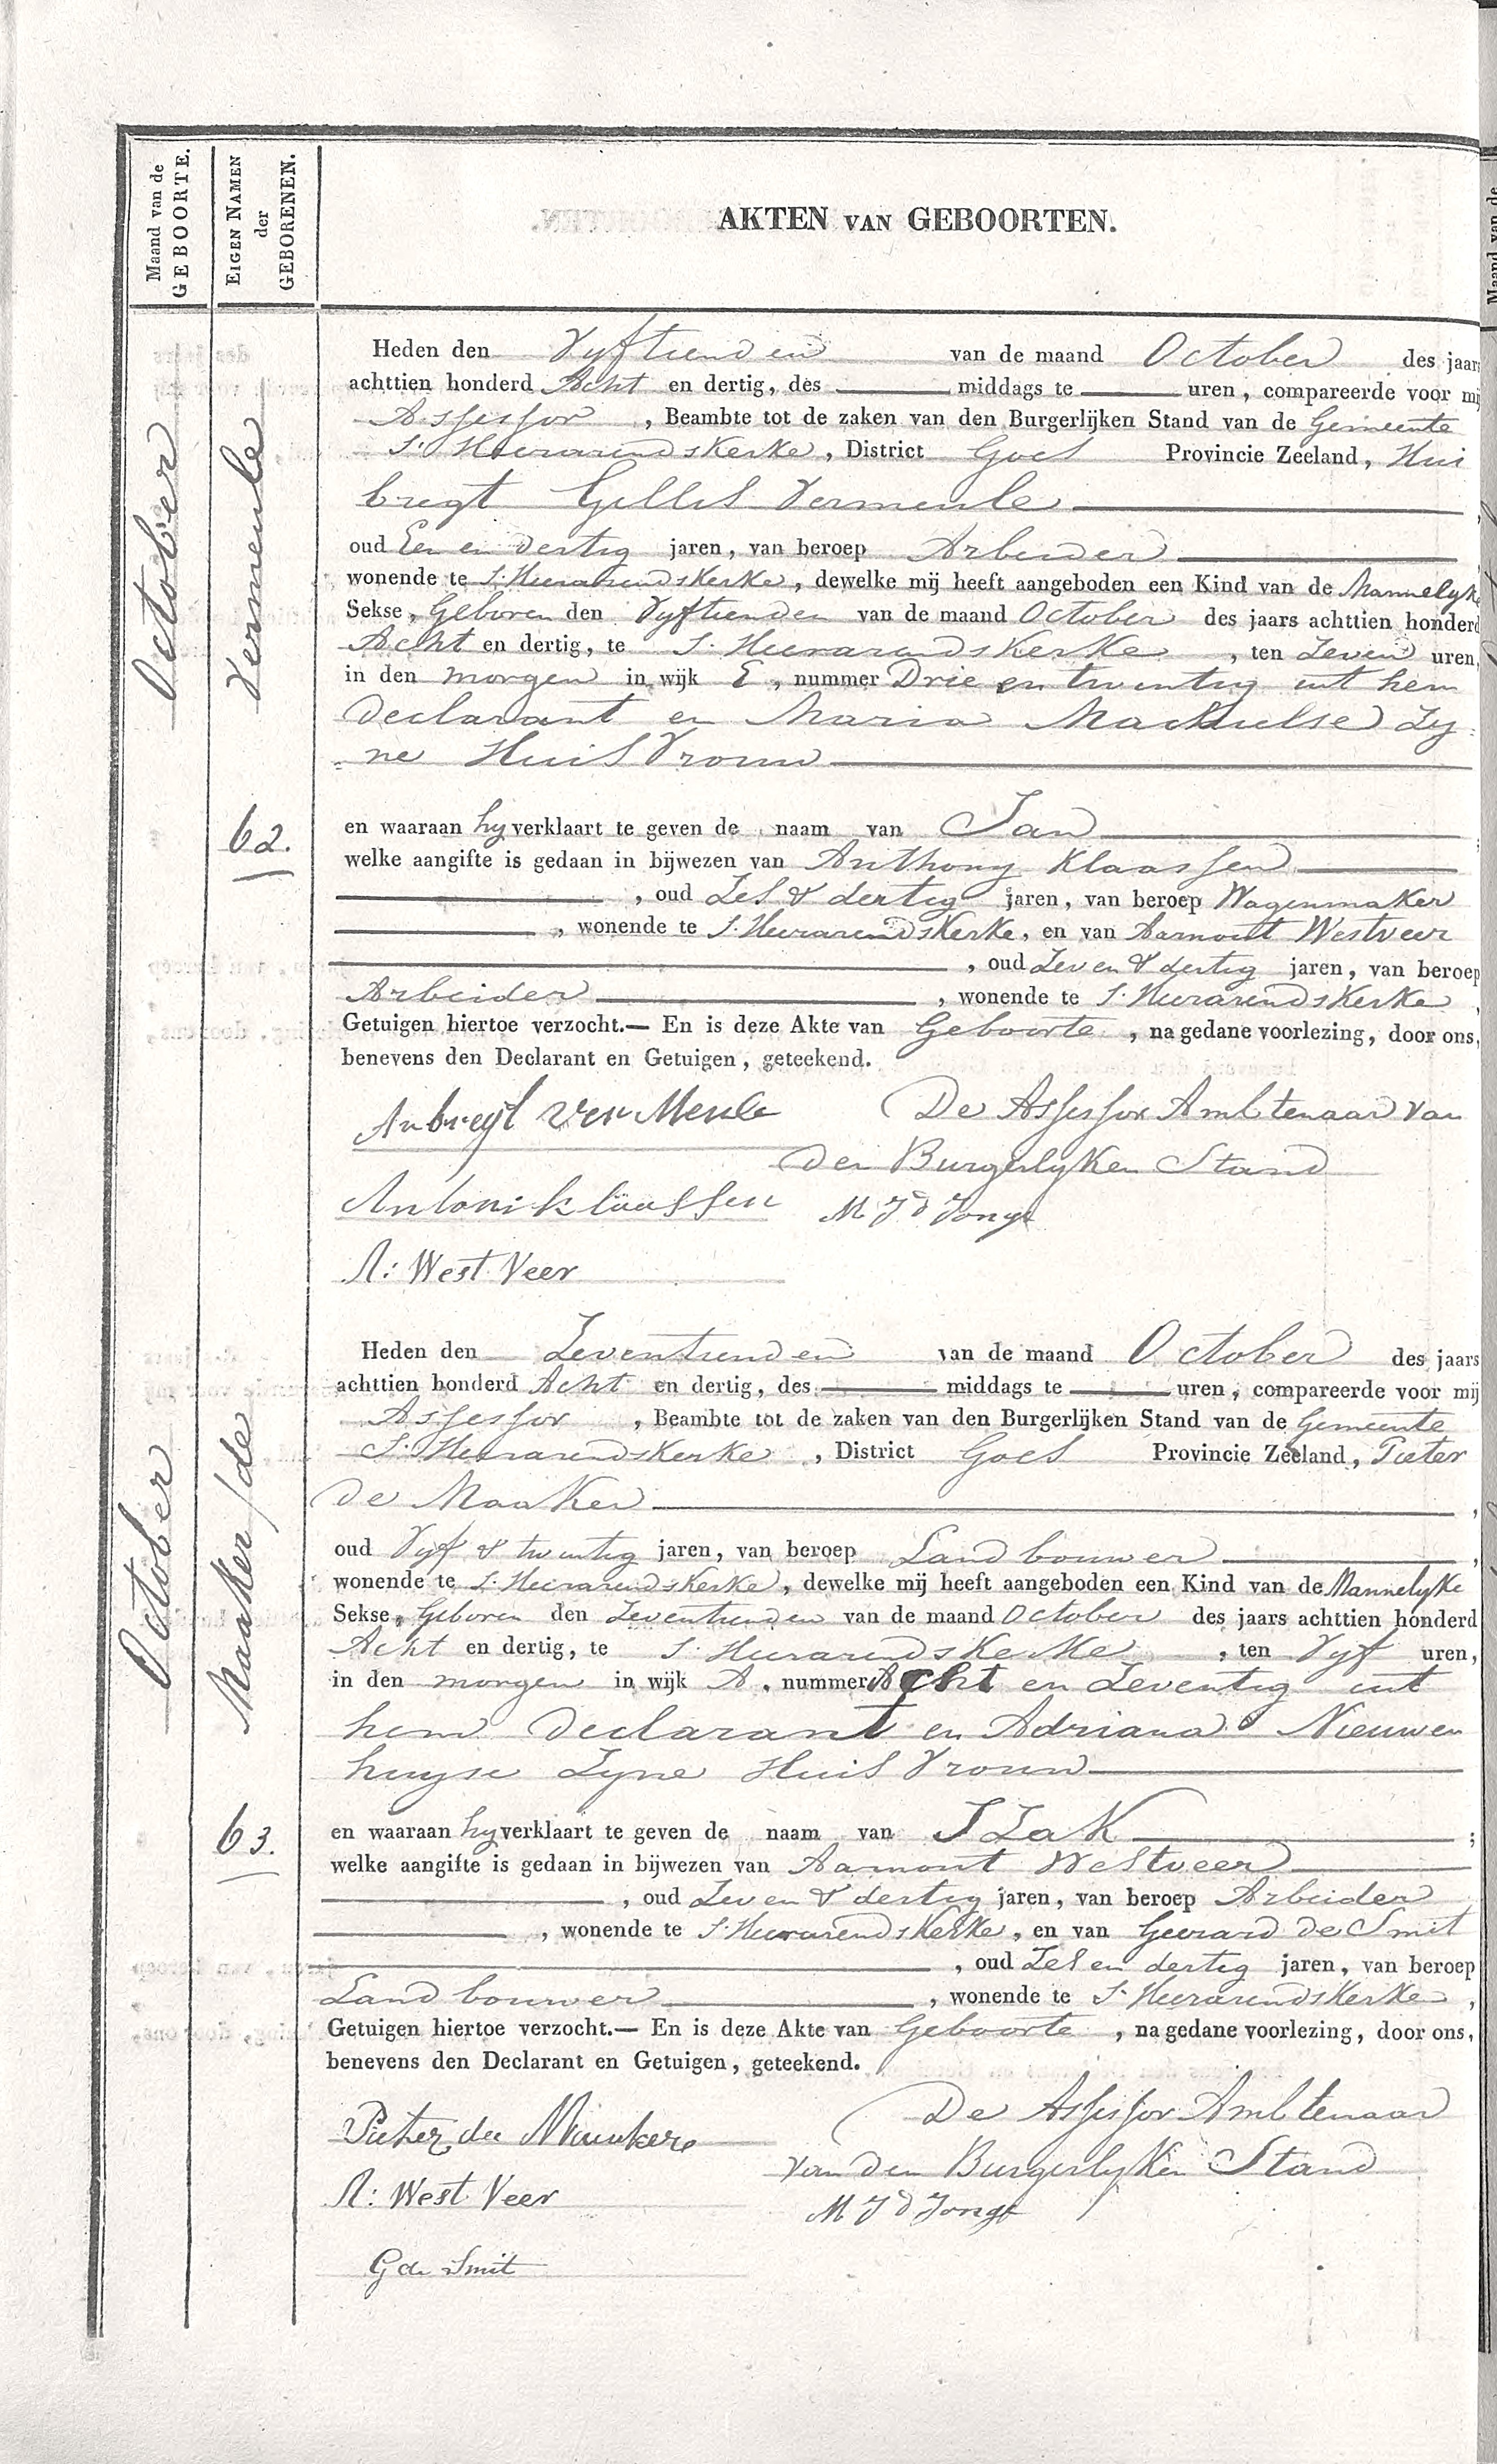 Maand van de
GEBOORTE.
EIGEN NAMEN
der
GEBORENEN.
AKTEN VAN GEBOORTEN.
October
Vermeule
62.
Heden den Vyftienden van de maand October des jaars
achttien honderd Acht en dertig, des middags te uren, compareerde voor mij
Assessor, Beambte tot de zaken van den Burgerlijken Stand van de Gemeente
S. Heerarendskerke, District Goes Provincie Zeeland, Hui
bregt Gillis Vermeule
oud Een en dertig jaren, van beroep Arbeider
wonende te S. Heerarendskerke, dewelke mij heeft aangeboden een Kind van de Mannelyke
Sekse, Geboren den Vyftienden van de maand October des jaars achttien honderd
Acht en dertig, te S. Heerarendskerke, ten Zeven uren,
in den morgen in wijk E, nummer Drie en twentig uit hem
declarant en Maria Machielse Zy
ne Huis Vrouw
en waaraan hy verklaart te geven de naam van Jan
welke aangifte is gedaan in bijwezen van Anthony Klaassen
, oud Zes & dertig jaren, van beroep Wagenmaker
, wonende te S. Heerarendskerke, en van Aarnout Westveer
, oud Zeven & dertig jaren, van beroep
Arbeider, wonende te S. Heerarendskerke,
Getuigen hiertoe verzocht.— En is deze Akte van Geboorte, na gedane voorlezing, door ons,
benevens den Declarant en Getuigen, geteekend.
Hubregt ver Meule De Assessor Ambtenaar van
den Burgerlyken Stand
Antoni klaassen M J d Jonge
A: West Veer
October
Maaker /de
63.
Heden den Zeventienden van de maand October des jaars
achttien honderd Acht en dertig, des middags te uren, compareerde voor mij
Assessor, Beambte tot de zaken van den Burgerlijken Stand van de Gemeente
S. Heerarendskerke, District Goes Provincie Zeeland, Pieter
de Maaker,
oud Vyf & twentig jaren, van beroep Land bouwer,
wonende te S. Heerarendskerke, dewelke mij heeft aangeboden een Kind van de Mannelyke
Sekse, Geboren den Zeventienden van de maand October des jaars achttien honderd
Acht en dertig, te S. Heerarendskerke, ten Vyf uren,
in den morgen in wijk A, nummer Acht en Zeventig uit
hem declarant en Adriana Nieuwen
huyse Zyne Huis Vrouw
en waaraan hy verklaart te geven de naam van IZak;
welke aangifte is gedaan in bijwezen van Aarnout Westveer
, oud Zeven & dertig jaren, van beroep Arbeider
, wonende te S. Heerarendskerke, en van Geerard de Smit
, oud Zes en dertig jaren, van beroep
Land bouwer, wonende te S. Heerarendskerke,
Getuigen hiertoe verzocht.— En is deze Akte van Geboorte, na gedane voorlezing, door ons,
benevens den Declarant en Getuigen, geteekend.
Pieter de De Assessor Ambtenaar
van den Burgerlyken Stand
A: West Veer M J d Jonge
G de Smit
Maand van de